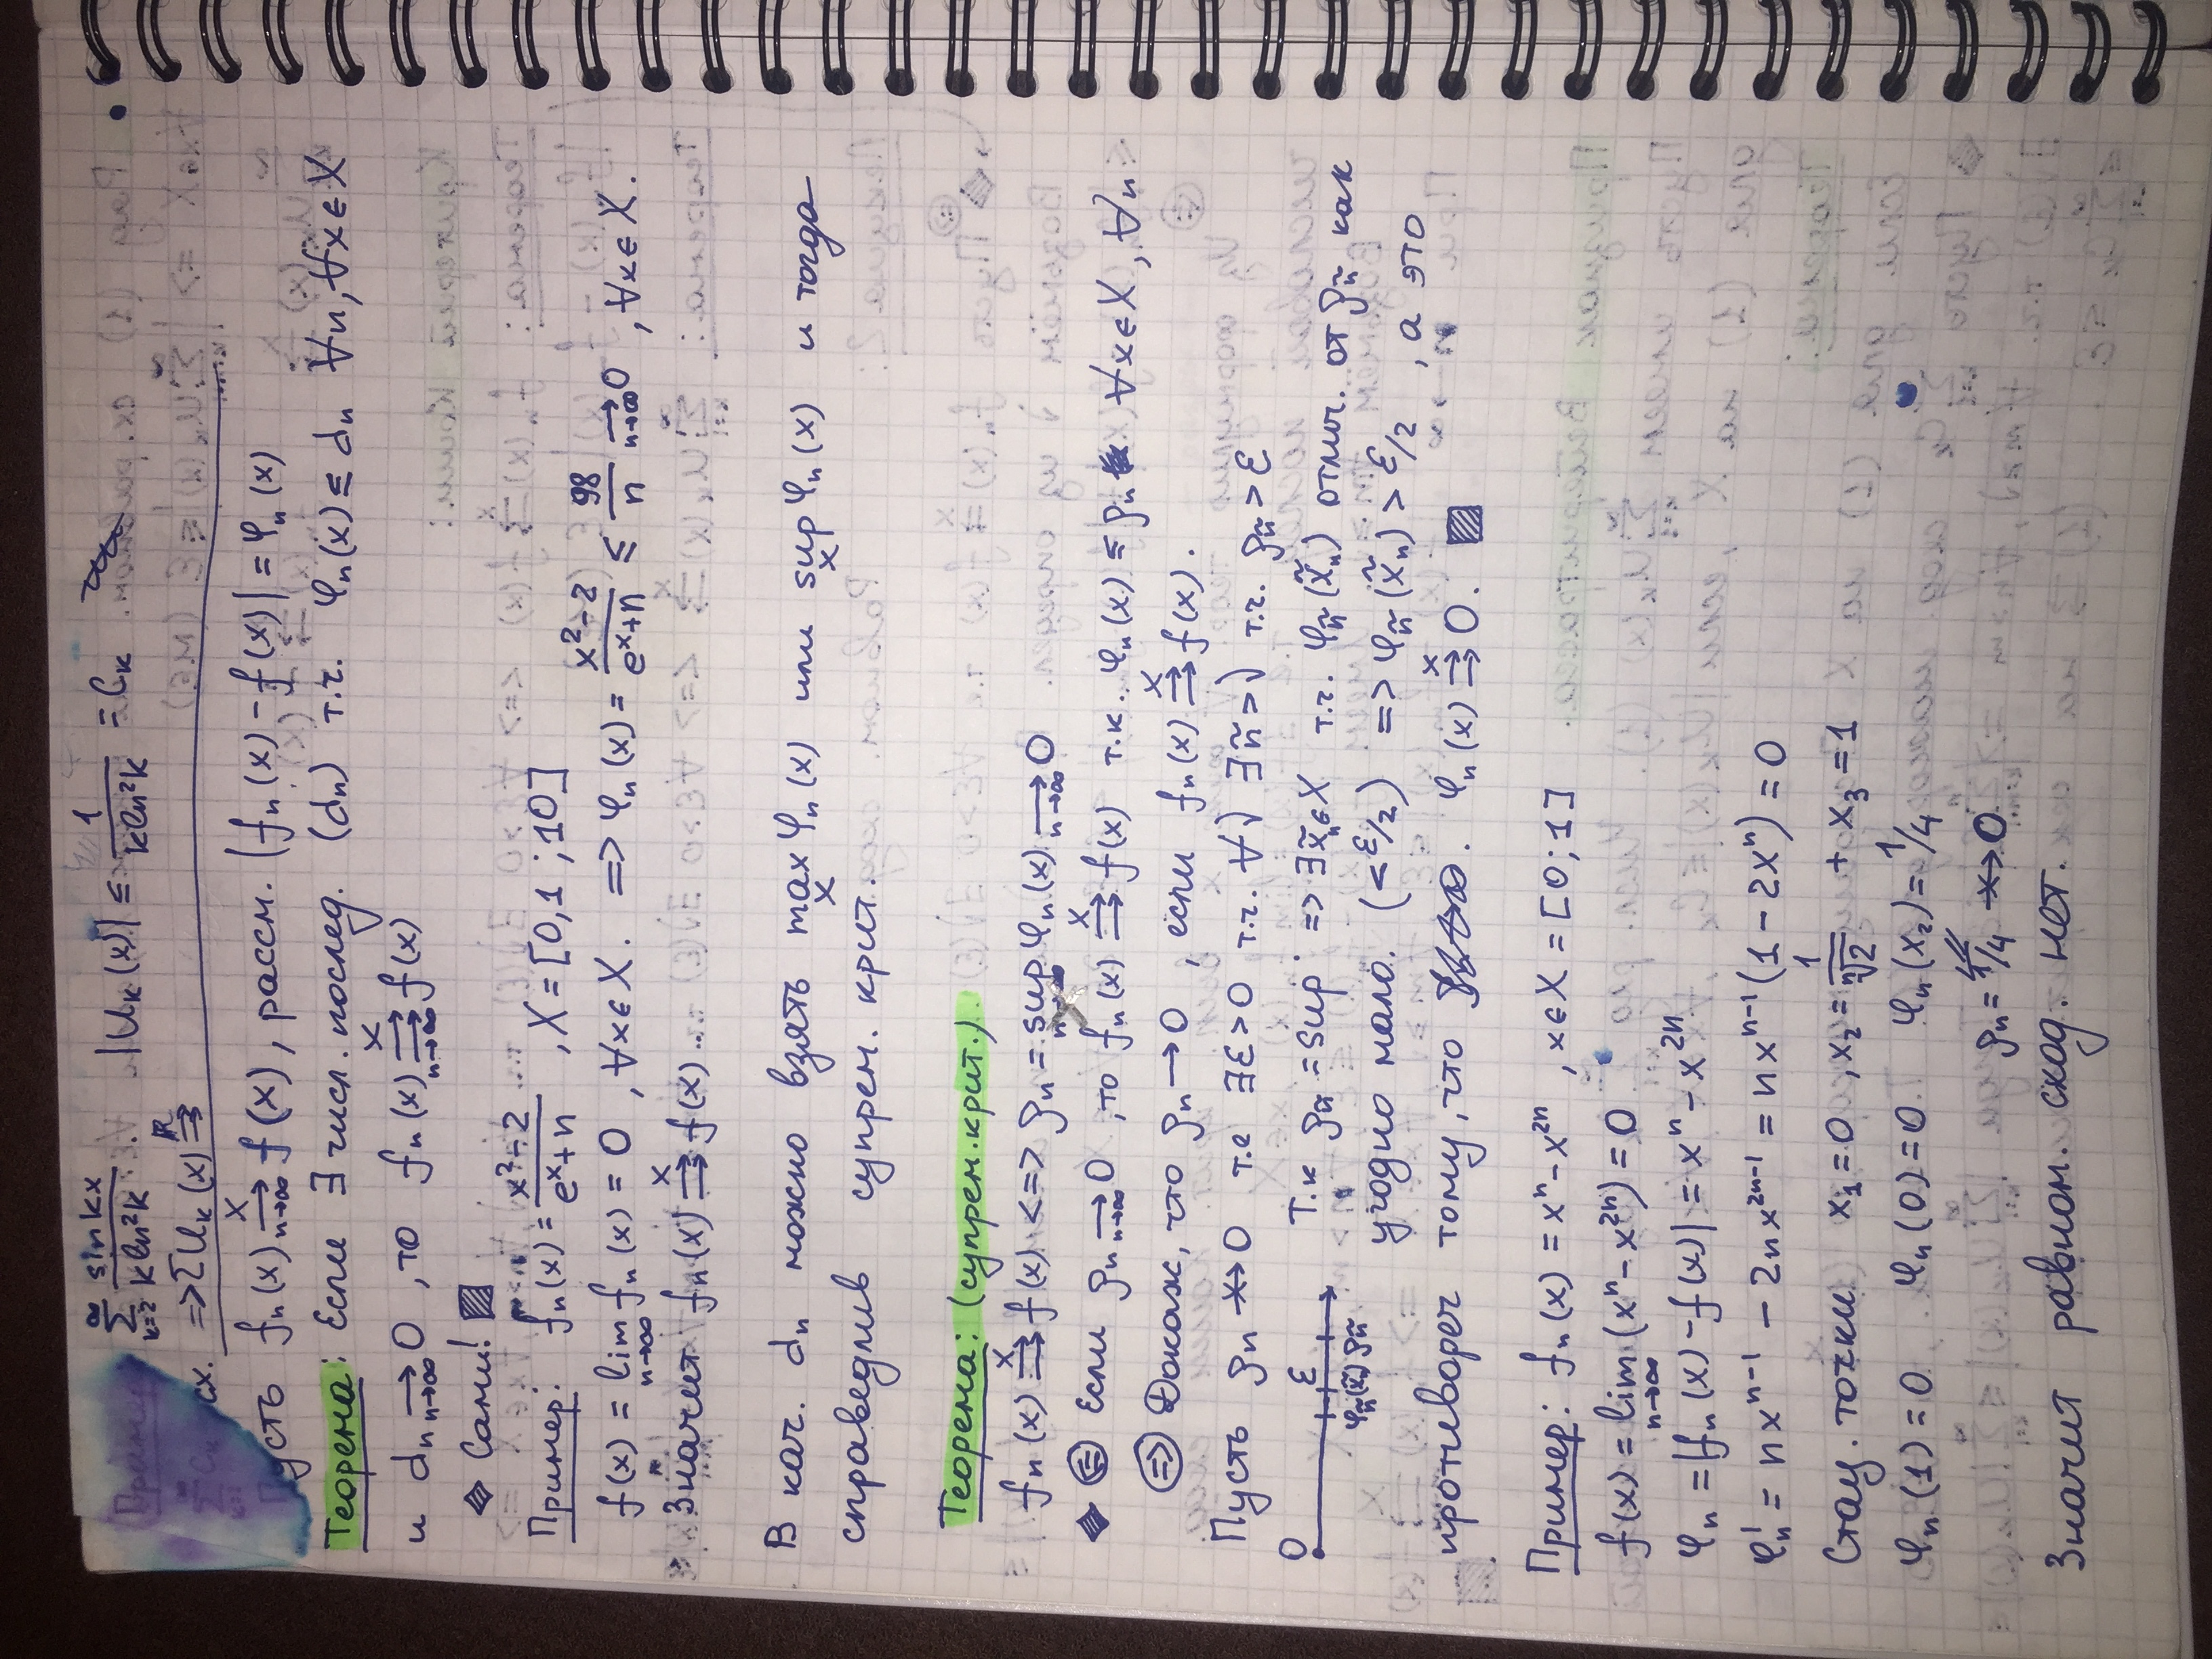 Пример ∑_{k=2}^{∞} sin kx / (k ln²k). |U_k(x)| ≤ 1/(k ln²k) = C_k
∑ C_k сх. => ∑U_k(x) ⇉^{ℝ}
Пусть f_n(x) →^{X}_{n→∞} f(x), рассм. |f_n(x) - f(x)| = φ_n(x)
Теорема: Если ∃ числ. послед. (d_n) т.ч. φ_n(x) ≤ d_n ∀n, ∀x∈X
и d_n →_{n→∞} 0, то f_n(x) ⇉^{X}_{n→∞} f(x)
◆ Сами! ▨
Пример: f_n(x) = (x²-2)/(e^x+n), X = [0,1 ; 10]
f(x) = lim_{n→∞} f_n(x) = 0, ∀x∈X. => φ_n(x) = (x²-2)/(e^x+n) ≤ 98/n →_{n→∞} 0, ∀x∈X.
Значит f_n(x) ⇉^{X} f(x)...
В кач. d_n можно взять max_{X} φ_n(x) или sup_{X} φ_n(x) и тогда
справедлив супрем. крит.
Теорема: (супрем. крит.)
f_n(x) ⇉^{X} f(x) <=> ρ_n = sup_{X} φ_n(x) →_{n→∞} 0
◆ (⇐) Если ρ_n →_{n→∞} 0, то f_n(x) ⇉^{X} f(x) т.к. φ_n(x) ≤ ρ_n ∀x∈X, ∀n
(⇒) Докаж, что ρ_n → 0, если f_n(x) ⇉^{X} f(x).
Пусть ρ_n ↛ 0 т.е ∃ε>0 т.ч. ∀ν ∃ñ>ν т.ч. ρ_ñ > ε
0 ε φ_ñ(x̃_n) ρ_ñ
Т.к ρ_ñ = sup => ∃x̃_n∈X т.ч. φ_ñ(x̃_n) отлич. от ρ_ñ как
угодно мало. (< ε/2) => φ_ñ(x̃_n) > ε/2, а это
противореч тому, что φ_n(x) ⇉^{X} 0. ▨
Пример: f_n(x) = x^n - x^{2n}, x∈X = [0;1]
f(x) = lim_{n→∞} (x^n - x^{2n}) = 0
φ_n = |f_n(x) - f(x)| = x^n - x^{2n}
φ'_n = nx^{n-1} - 2nx^{2n-1} = nx^{n-1}(1 - 2x^n) = 0
Стац. точки x_1 = 0, x_2 = 1/ⁿ√2 + x_3 = 1
φ_n(1) = 0 φ_n(0) = 0 φ_n(x_2) = 1/4
ρ_n = 1/4 ↛ 0
Значит равном. сход. нет.